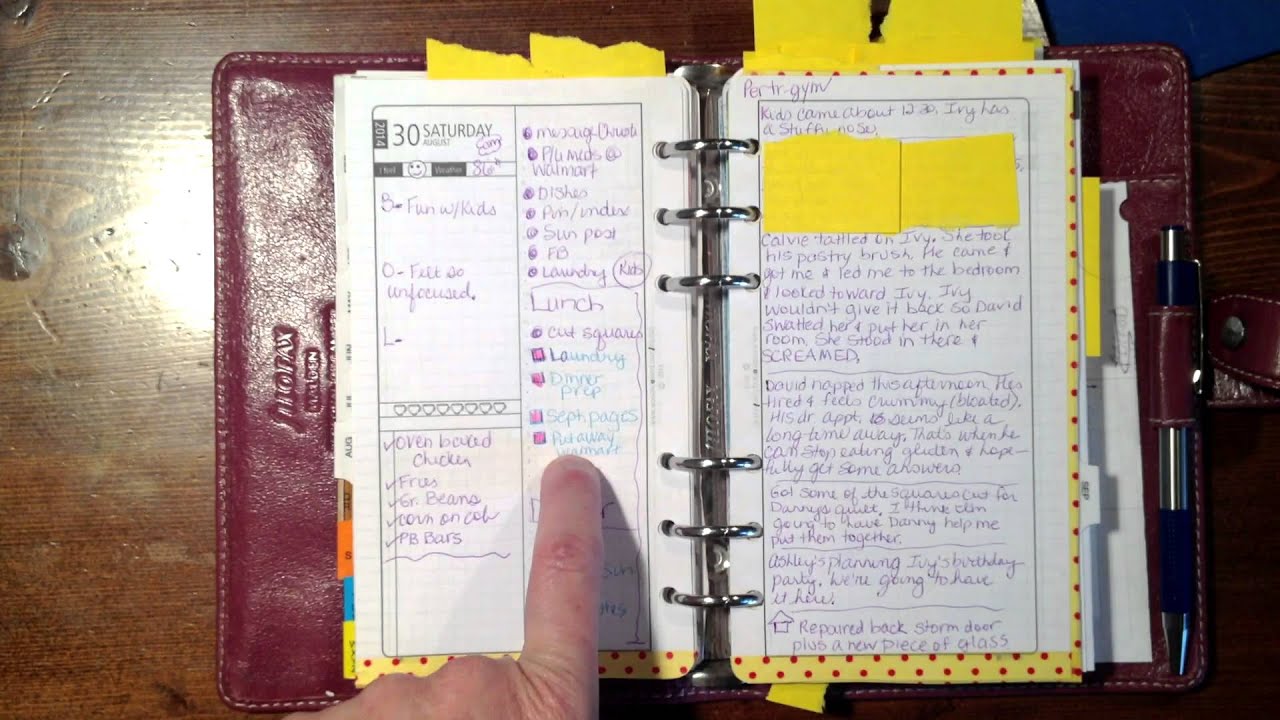 2014
30 SATURDAY
AUGUST
I feel
Weather
86°
B- Fun w/Kids
O- Felt so
unfocused.
L-
✓Oven baked
Chicken
✓Fries
✓Gr. Beans
✓Corn on cob
✓PB Bars
message Christa
P/U meds @
Walmart
Dishes
Pin/index
Sun post
FB
Laundry
Kids
Lunch
cut squares
Laundry
Dinner
prep
Sept pages
Put away
Walmart
Sun
filofax
AUG
SEP
Kids came about 12:30. Ivy has
a stuffy nose.
Calvie tattled on Ivy. She took
his pastry brush. He came &
got me & led me to the bedroom
& looked toward Ivy. Ivy
wouldn't give it back so David
swatted her & put her in her
room. She stood in there &
SCREAMED.
David napped this afternoon. He's
tired & feels crummy (bloated).
His dr. appt. seems like a
long time away. That's when he
can stop eating gluten & hope-
fully get some answers.
Got some of the squares cut for
Danny's quilt. I think I'm
going to have Danny help me
put them together.
Ashley's planning Ivy's birthday
party. We're going to have
it here.
Repaired back storm door
plus a new piece of glass